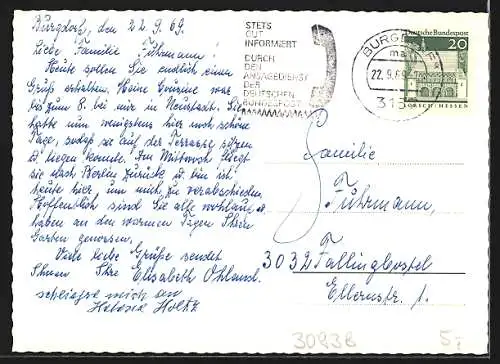 Burgdorf, den 22.9.69.
Liebe Familie Fuhrmann!
Heute sollen Sie endlich einen
Gruß erhalten. Meine Cousine war
bis zum 8. bei mir in Neustadt. Sie
hatte nun wenigstens hier noch schöne
Tage, sodaß sie auf der Terrasse sitzen
u. liegen konnte. Am Mittwoch fliegt
sie nach Berlin zurück u. bin ich
heute hier, um mich zu verabschieden.
Hoffentlich sind Sie alle wohlauf u.
haben an den warmen Tagen Ihren
Garten genossen.
Viele liebe Grüße sendet
Ihnen Ihre Elisabeth
schließe mich an
Helene Holtz
STETS
GUT
INFORMIERT
DURCH
DEN
ANSAGEDIENST
DER
DEUTSCHEN
BUNDESPOST
BURGDORF
22.9.69
Deutsche Bundespost
20
LORSCH/HESSEN
Familie
Fuhrmann,
3032 Fallingbostel
Ellernstr. 1.
3093B
5,-